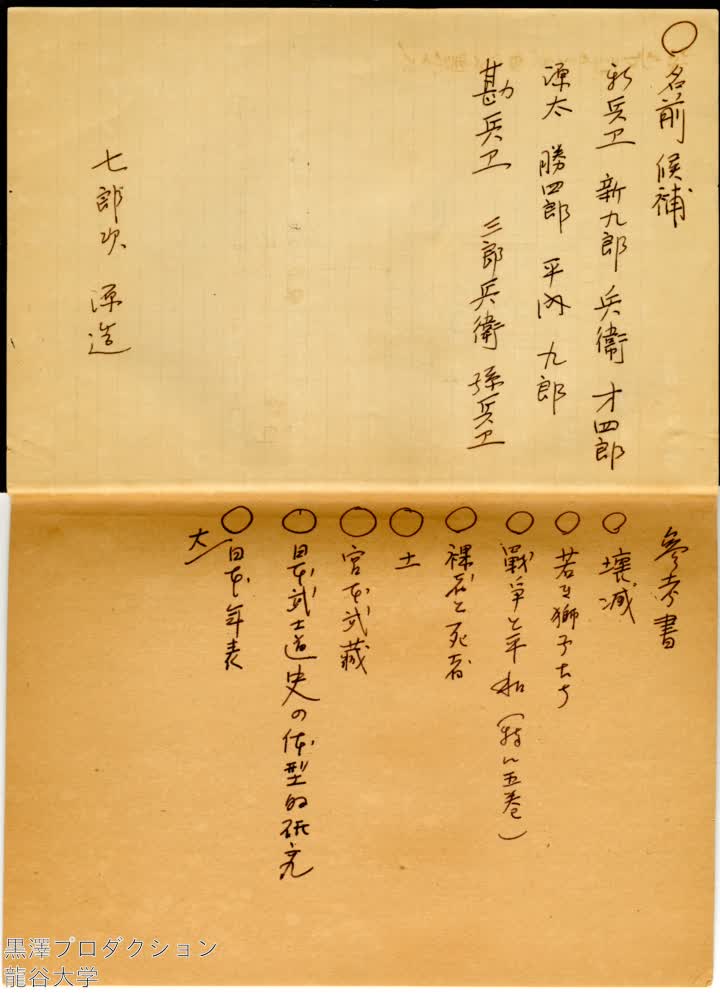 ○名前候補
新兵卫 新九郎 兵衞 才四郎
源太 勝四郎 平内 九郎
勘兵卫 三郎兵衞 孫兵卫
七郎次 源造
参考書
○壊滅
○若き獅子たち
○戰争と平和(特に五巻)
○裸者と死者
○土
○宮本武藏
○日本武士道史の体型的研究
○大日本年表
黒澤プロダクション
龍谷大学